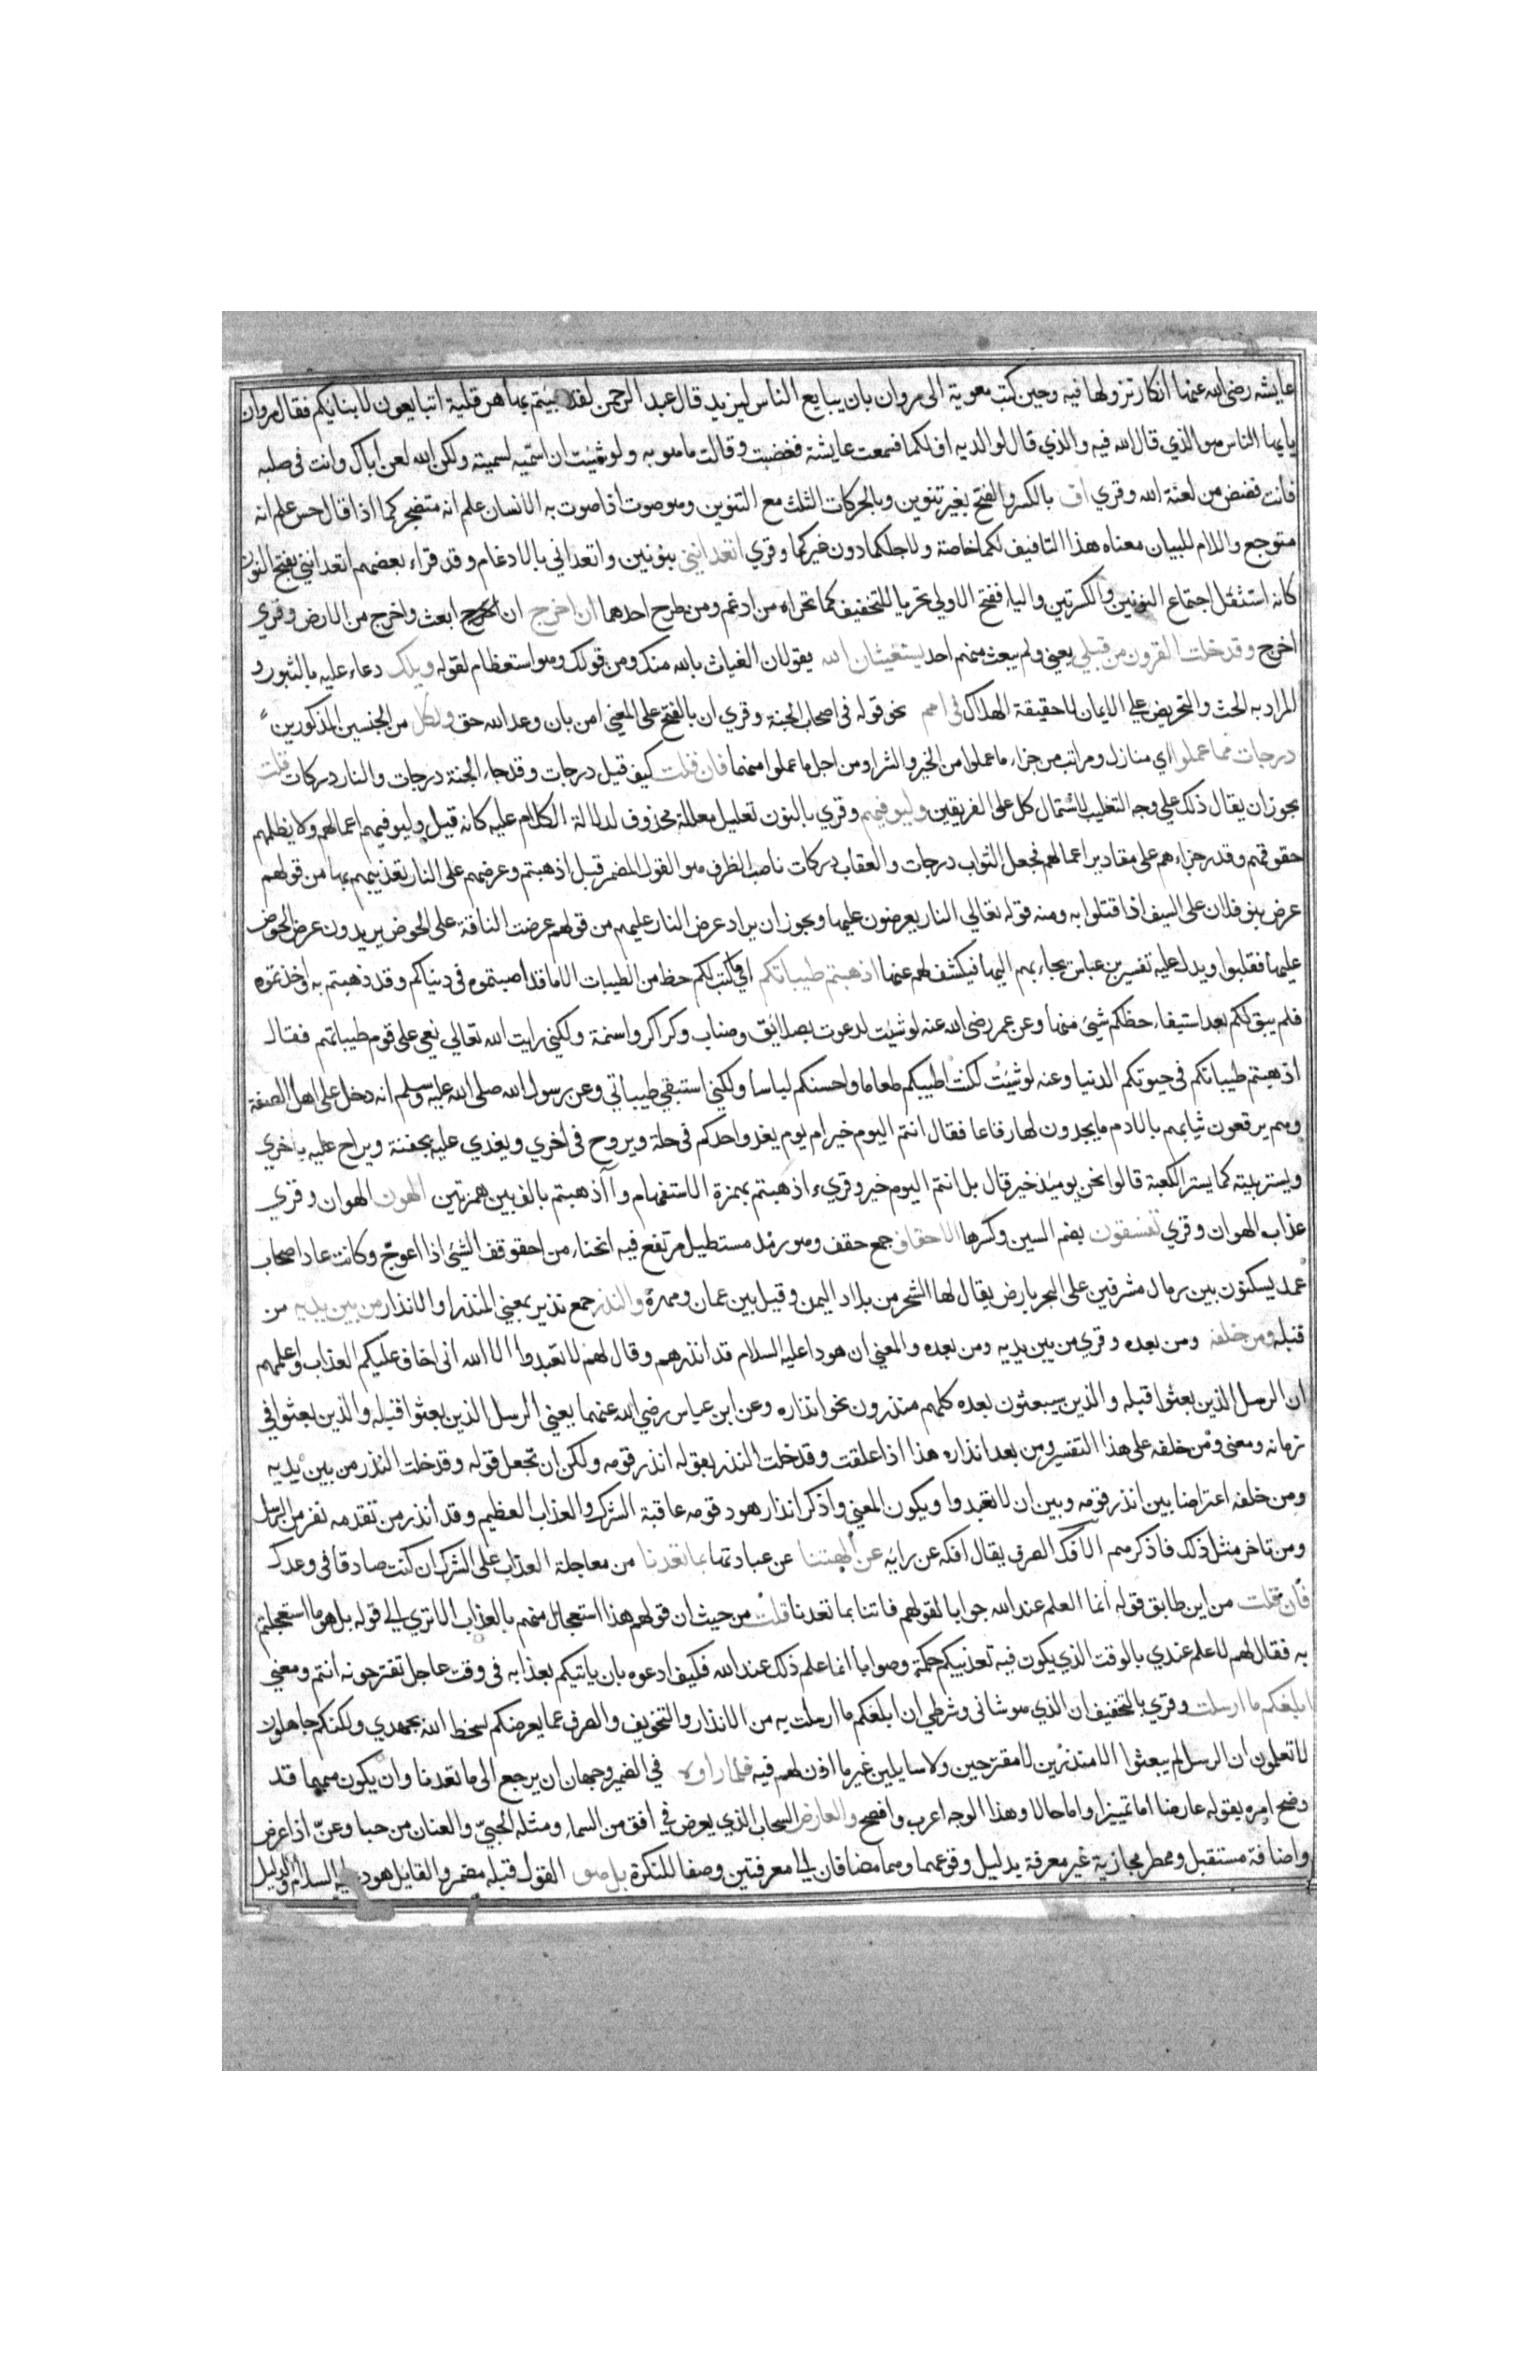 عايشه رضى الله عنها انكار نزولها فيه وحين كتب معوية الى مروان بان يبايع الناس ليزيد قال عبد الرحمن لقد جيتم بها هرقلية اتبايعون لابنايكم فقال مروان
يايها الناس هو الذي قال الله فيه والذي قال لوالديه اف لكما فسمعت عايشة فغضبت وقالت ما هو به ولو شيت ان اسميه لسميته ولكن الله لعن اباك وانت فى صلبه
فانت فضض من لعنة الله وقري اف بالكسر والفتح بغير تنوين وبالحركات الثلث مع التنوين وهو صوت اذا صوت به الانسان علم انه متضجر كما اذا قال حس علم انه
متوجع واللام للبيان معناه هذا التافيف لكما خاصة ولاجلكما دون غيركما وقري اتعدانني بنونين واتعداني بالادغام وقد قراء بعضهم اتعدانني بفتح النون
كانه استثقل اجتماع النونين والكسرتين واليا، ففتح الاولي تحريا للتخفيف كما تحراه من ادغم ومن طرح احدهما ان اخرج ان اخرج ابعث واخرج من الارض وقري
اخرج وقد خلت القرون من قبلي يعني ولم يبعث منهم احد يستغيثان الله يقولان الغياث بالله منك ومن قولك وهو استعظام لقوله ويلك دعاء عليه بالثبور و
المراد به الحث والتحريض علي الايمان لا حقيقة الهلاك في امم نحو قوله فى اصحاب الجنة وقري ان بالفتح على المعني امن بان وعد الله حق ولكل من الجنسين المذكورين
درجات مما عملوا اي منازل ومراتب من جزاء ما عملوا من الخير والشر او من اجل ما عملوا منهما فان قلت كيف قيل درجات وقد جاء الجنة درجات والنار دركات قلت
يجوز ان يقال ذلك علي وجه التغليب لاشتمال كل على الفريقين وليوفيهم وقري بالنون تعليل معلله محذوف لدلالة الكلام عليه كانه قيل وليوفيهم اعمالهم ولا يظلمهم
حقوقهم وقدر جزاءهم على مقادير اعمالهم فجعل الثواب درجات والعقاب دركات ناصب الظرف هو القول المضمر قبل اذهبتم وعرضهم على النار تعذيبهم بها من قولهم
عرض بنو فلان على السيف اذا قتلوا به ومنه قوله تعالي النار يعرضون عليها ويجوز ان يراد عرض النار عليهم من قولهم عرضت الناقة على الحوض يريدون عرض الحوض
عليها فقلبوا ويدل عليه تفسير بن عباس يجاء بهم اليها فيكشف لهم عنها اذهبتم طيباتكم اي ما كتب لكم حظ من الطيبات الا ما قد اصبتموه فى دنياكم وقد ذهبتم به واخذتموه
فلم يبق لكم بعد استيفاء حظكم شئ منها وعن عمر رضى الله عنه لو شيت لدعوت بصلايق وصناب وكراكر واسنمة ولكني رايت الله تعالي نعى على قوم طيباتهم فقال
اذهبتم طيباتكم فى حيوتكم الدنيا وعنه لو شيت لكنت اطيبكم طعاما واحسنكم لباسا ولكني استبقي طيباتي وعن رسول الله صلى الله عليه وسلم انه دخل على اهل الصفة
وهم يرقعون ثيابهم بالادم ما يجدون لها رقاعا فقال انتم اليوم خير ام يوم يغدوا احدكم فى حلة ويروح فى اخري ويغدي عليه بجفنة ويراح عليه باخري
ويستر بيته كما يستر الكعبة قالوا نحن يوميذ خير قال بل انتم اليوم خير وقريء اذهبتم بهمزة الاستفهام واآذهبتم بالف بين همزتين الهون الهوان وقري
عذاب الهوان وقري تفسقون بضم السين وكسرها الاحقاف جمع حقف وهو رمل مستطيل مرتفع فيه انحناء من احقوقف الشئ اذا اعوجّ وكانت عاد اصحاب
عمد يسكنون بين رمال مشرفين على البحر بارض يقال لها الشحر من بلاد اليمن وقيل بين عمان ومهرة والنذر جمع نذير بمعني المنذر او الانذار من بين يديه من
قبله ومن خلفه ومن بعده وقري من بين يديه ومن بعده والمعني ان هودا عليه السلام قد انذرهم وقال لهم لا تعبدوا الا الله انى اخاف عليكم العذاب واعلمهم
ان الرسل الذين بعثوا قبله والذين سيبعثون بعده كلهم منذرون نحو انذاره وعن ابن عباس رضي الله عنهما يعني الرسل الذين بعثوا قبله والذين بعثوا في
زمانه ومعنى ومن خلفه على هذا التفسير ومن بعد انذاره هذا اذا علقت وقد خلت النذر بقوله انذر قومه ولكن ان تجعل قوله وقد خلت النذر من بين يديه
ومن خلفه اعتراضا بين انذر قومه وبين ان لا تعبدوا ويكون المعني واذكر انذار هود قومه عاقبة الشرك والعذاب العظيم وقد انذر من تقدمه نفر من الرسل
ومن تاخر مثل ذلك فاذكرهم الافك الصرف يقال افكه عن رايه عن الهتنا عن عبادتها بما تعدنا من معاجلة العذاب على الشرك ان كنت صادقا فى وعدك
فان قلت من اين طابق قوله انما العلم عند الله جوابا لقولهم فاتنا بما تعدنا قلت من حيث ان قولهم هذا استعجال منهم بالعذاب الا تري الي قوله بل هو ما استعجلتم
به فقال لهم لا علم عندي بالوقت الذي يكون فيه تعذيبكم حكمة وصوابا انما علم ذلك عند الله فكيف ادعوه بان ياتيكم بعذابه فى وقت عاجل تقترحونه انتم ومعني
ابلغكم ما ارسلت وقري بالتخفيف ان الذي هو شانى وشرطي ان ابلغكم ما ارسلت به من الانذار والتخويف والصرف عما يعرضكم لسخط الله بجهدي ولكنكم جاهلون
لا تعلمون ان الرسل لم يبعثوا الا منذرين لا مقترحين ولا سايلين غير ما اذن لهم فيه فلما راوه في الضمير وجهان ان يرجع الى ما تعدنا وان يكون مبهما قد
وضح امره بقوله عارضا اما تمييزا واما حالا وهذا الوجه اعرب وافصح والعارض السحاب الذي يعرض في افق من السماء ومثله الحبيّ والعنان من حبا وعنّ اذا عرض
واضافة مستقبل وممطر مجازية غير معرفة بدليل وقوعهما وهما مضافان الي معرفتين وصفا للنكرة بل هو القول قبله مضمر والقايل هود عليه السلام والدليل